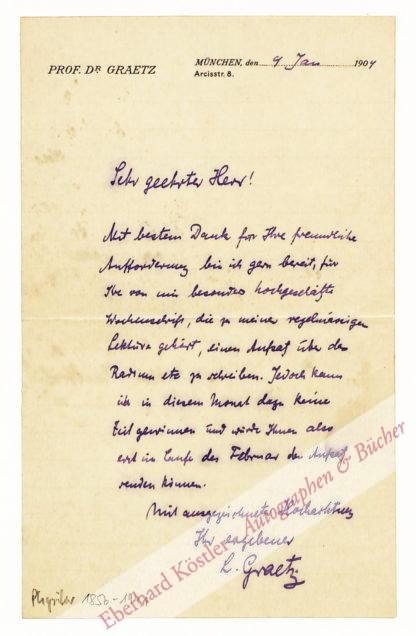 PROF. DR GRAETZ
MÜNCHEN, den 9 Jan 1904
Arcisstr. 8.
Sehr geehrter Herr!
Mit bestem Dank für Ihre freundliche
Aufforderung bin ich gern bereit, für
Ihre von mir besonders hochgeschätzte
Wochenschrift, die zu meiner regelmässigen
Lektüre gehört, einen Aufsatz über das
Radium etc zu schreiben. Jedoch kann
ich in diesem Monat dazu keine
Zeit gewinnen und würde Ihnen also
erst im Laufe des Februar den Aufsatz
senden können.
Mit ausgezeichneter Hochachtung
Ihr ergebener
L. Graetz
Physiker 1856-
Eberhard Köstler Autographen & Bücher